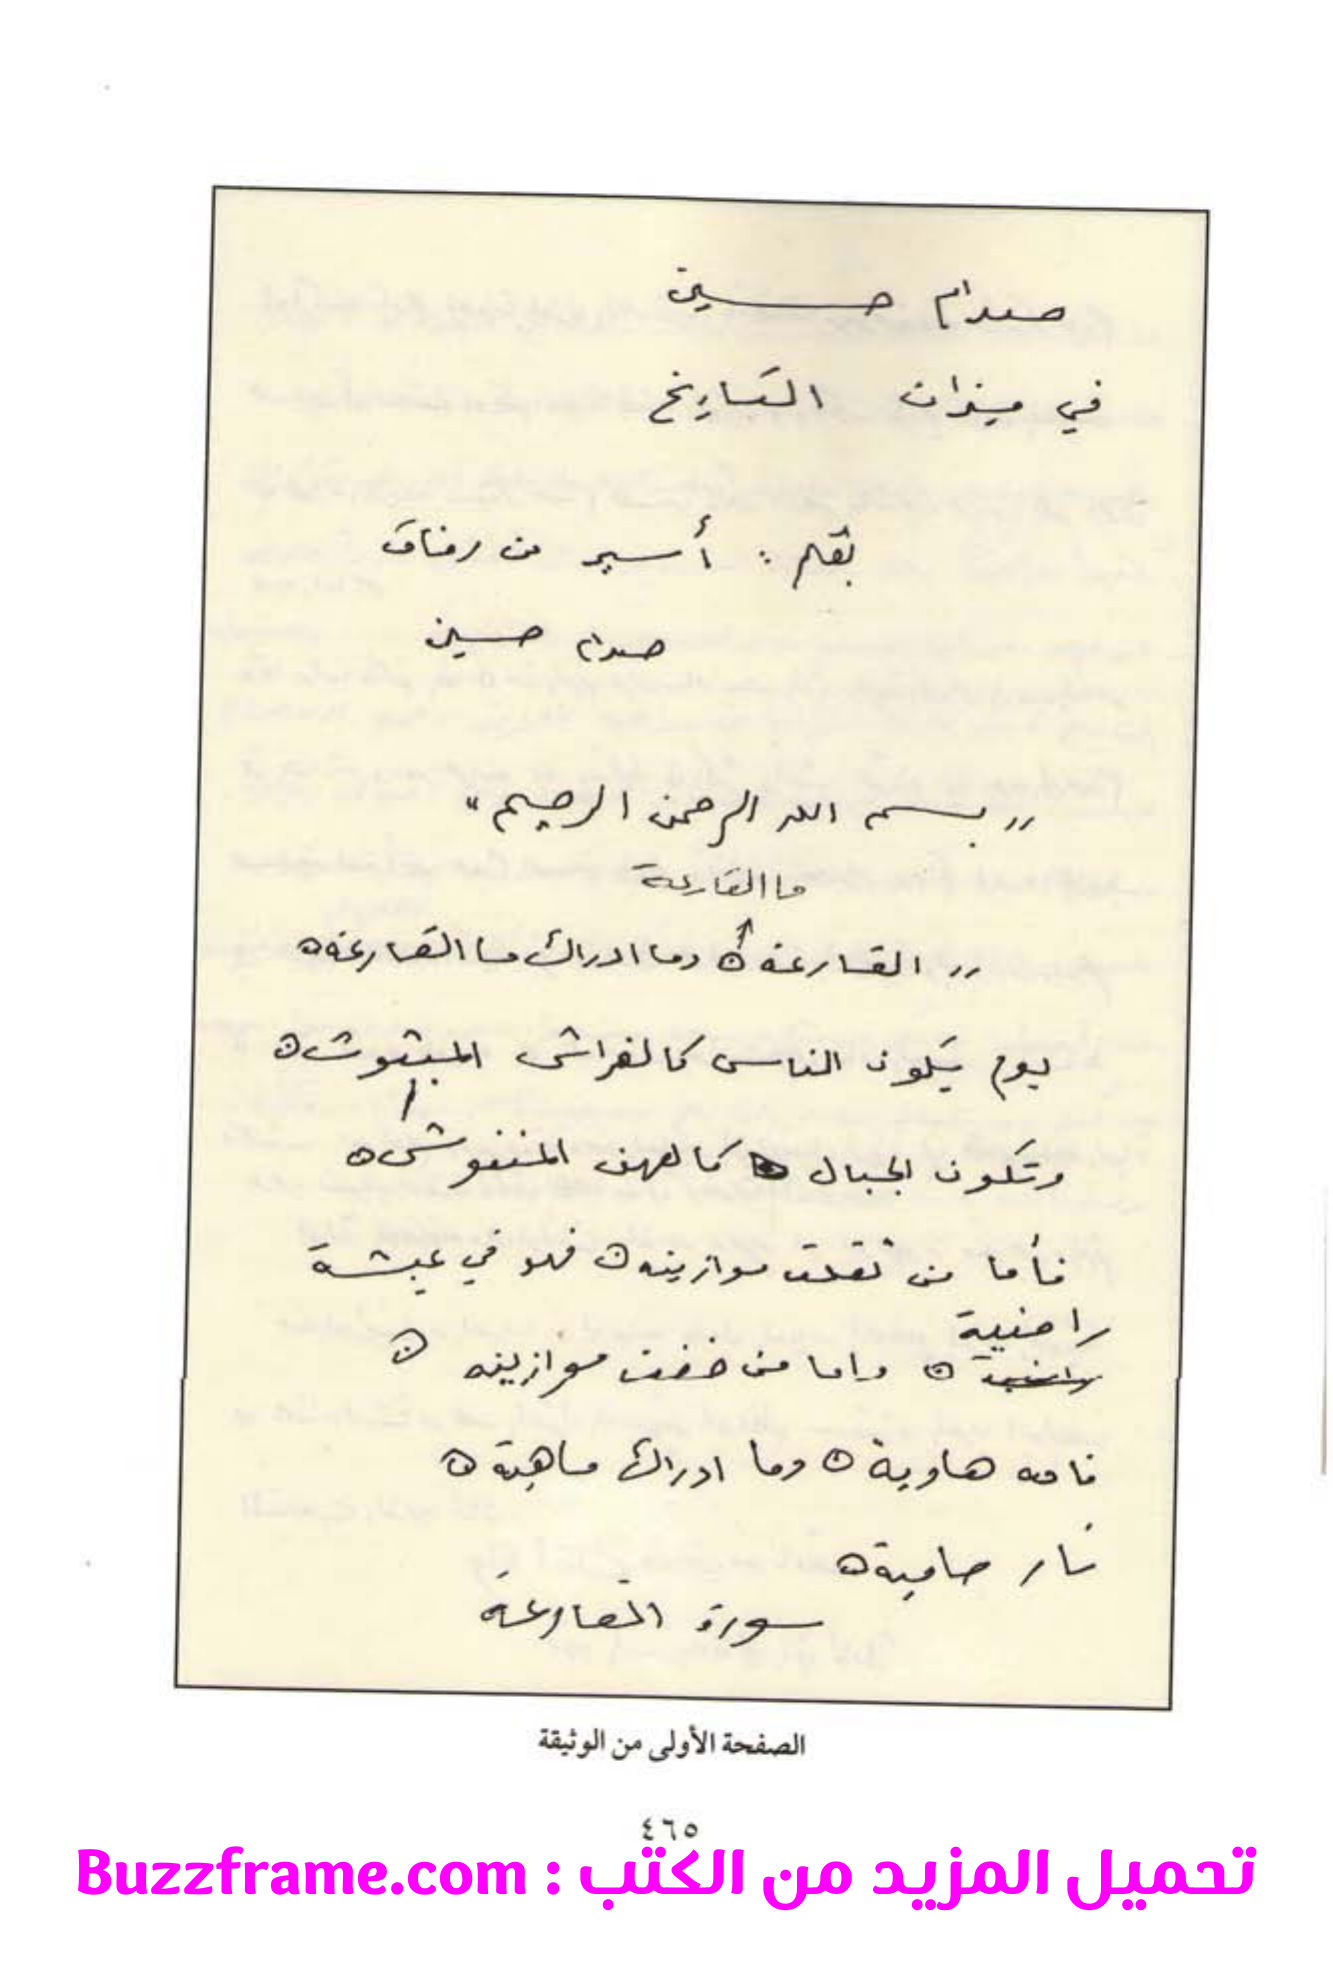 صدام حسين
في ميزان التاريخ
بقلم : أسير من رفاق
صدام حسين
" بسم الله الرحمن الرحيم "
ما القارعة
" القارعة ه وما ادراك ما القارعة ه
يوم يكون الناس كالفراش المبثوث ه
وتكون الجبال كالعهن المنفوش ه
فأما من ثقلت موازينه ه فهو في عيشة
راضية
راضية ه واما من خفت موازينه ه
فامه هاوية ه وما ادراك ماهية ه
نار حامية ه
سورة القارعة
الصفحة الأولى من الوثيقة
٤٦٥
تحميل المزيد من الكتب : Buzzframe.com